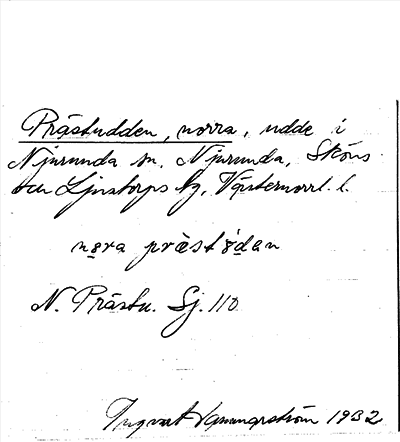 Prästudden, norra, udde i
Njurunda sn, Njurunda, Sköns
och Ljustorps tg, Västernorrl. l.
nǫra prästǫ́dan
N. Prästu. Sj. 110
Ingvart Hammarström 1932